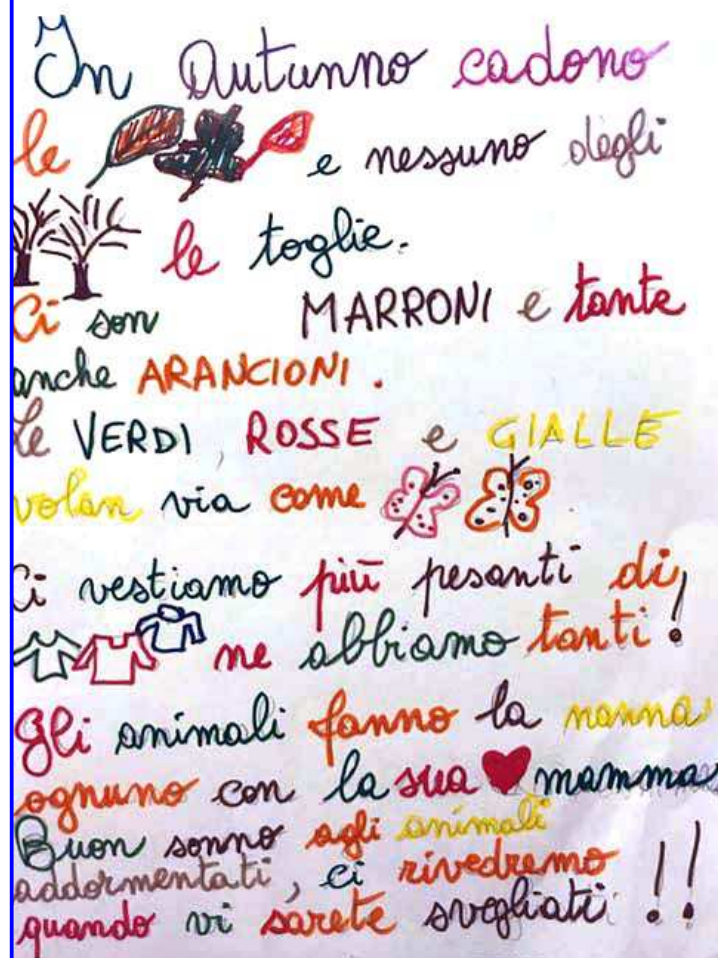 In Autunno cadono
le e nessuno degli
le toglie.
Ci son MARRONI e tante
anche ARANCIONI.
Le VERDI, ROSSE e GIALLE
volan via come
Ci vestiamo più pesanti di
ne abbiamo tanti!
Gli animali fanno la nanna
ognuno con la sua mamma
Buon sonno agli animali
addormentati, ci rivedremo
quando vi sarete svegliati!!